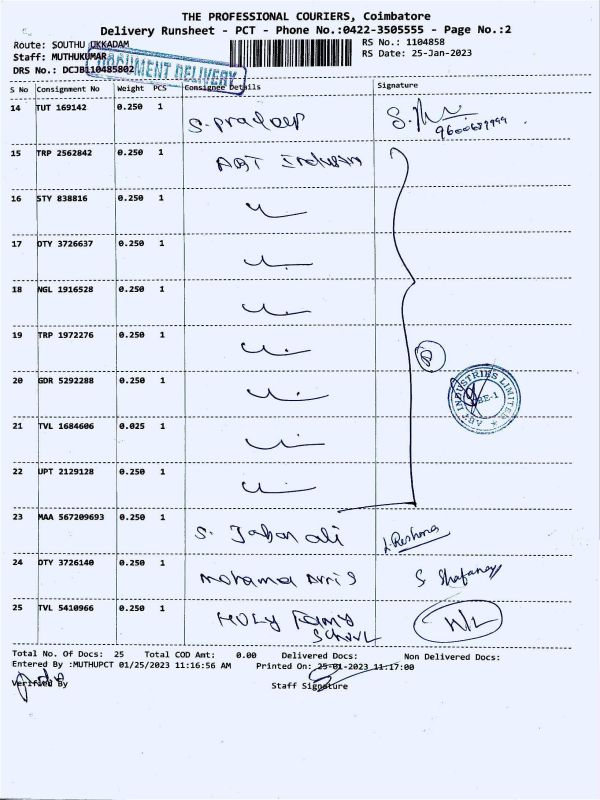 THE PROFESSIONAL COURIERS, Coimbatore
Delivery Runsheet - PCT - Phone No.:0422-3505555 - Page No.:2
Route: SOUTHU UKKADAM RS No.: 1104858
Staff: MUTHUKUMAR RS Date: 25-Jan-2023
DRS No.: DCJB110485802 DOCUMENT DELIVERY
S No Consignment No Weight PCS Consignee Details Signature
14 TUT 169142 0.250 1 S. Pradeep
15 TRP 2562842 0.250 1 ABT
16 STY 838816 0.250 1
17 OTY 3726637 0.250 1
18 NGL 1916528 0.250 1
19 TRP 1972276 0.250 1
20 GDR 5292288 0.250 1
21 TVL 1684606 0.025 1
22 UPT 2129128 0.250 1
ABT INDUSTRIES LIMITED
23 MAA 567209693 0.250 1 S. ali
24 OTY 3726140 0.250 1 S
25 TVL 5410966 0.250 1 HOLY School
Total No. Of Docs: 25 Total COD Amt: 0.00 Delivered Docs: Non Delivered Docs:
Entered By :MUTHUPCT 01/25/2023 11:16:56 AM Printed On: 25-01-2023 11:17:00
Verified By Staff Signature